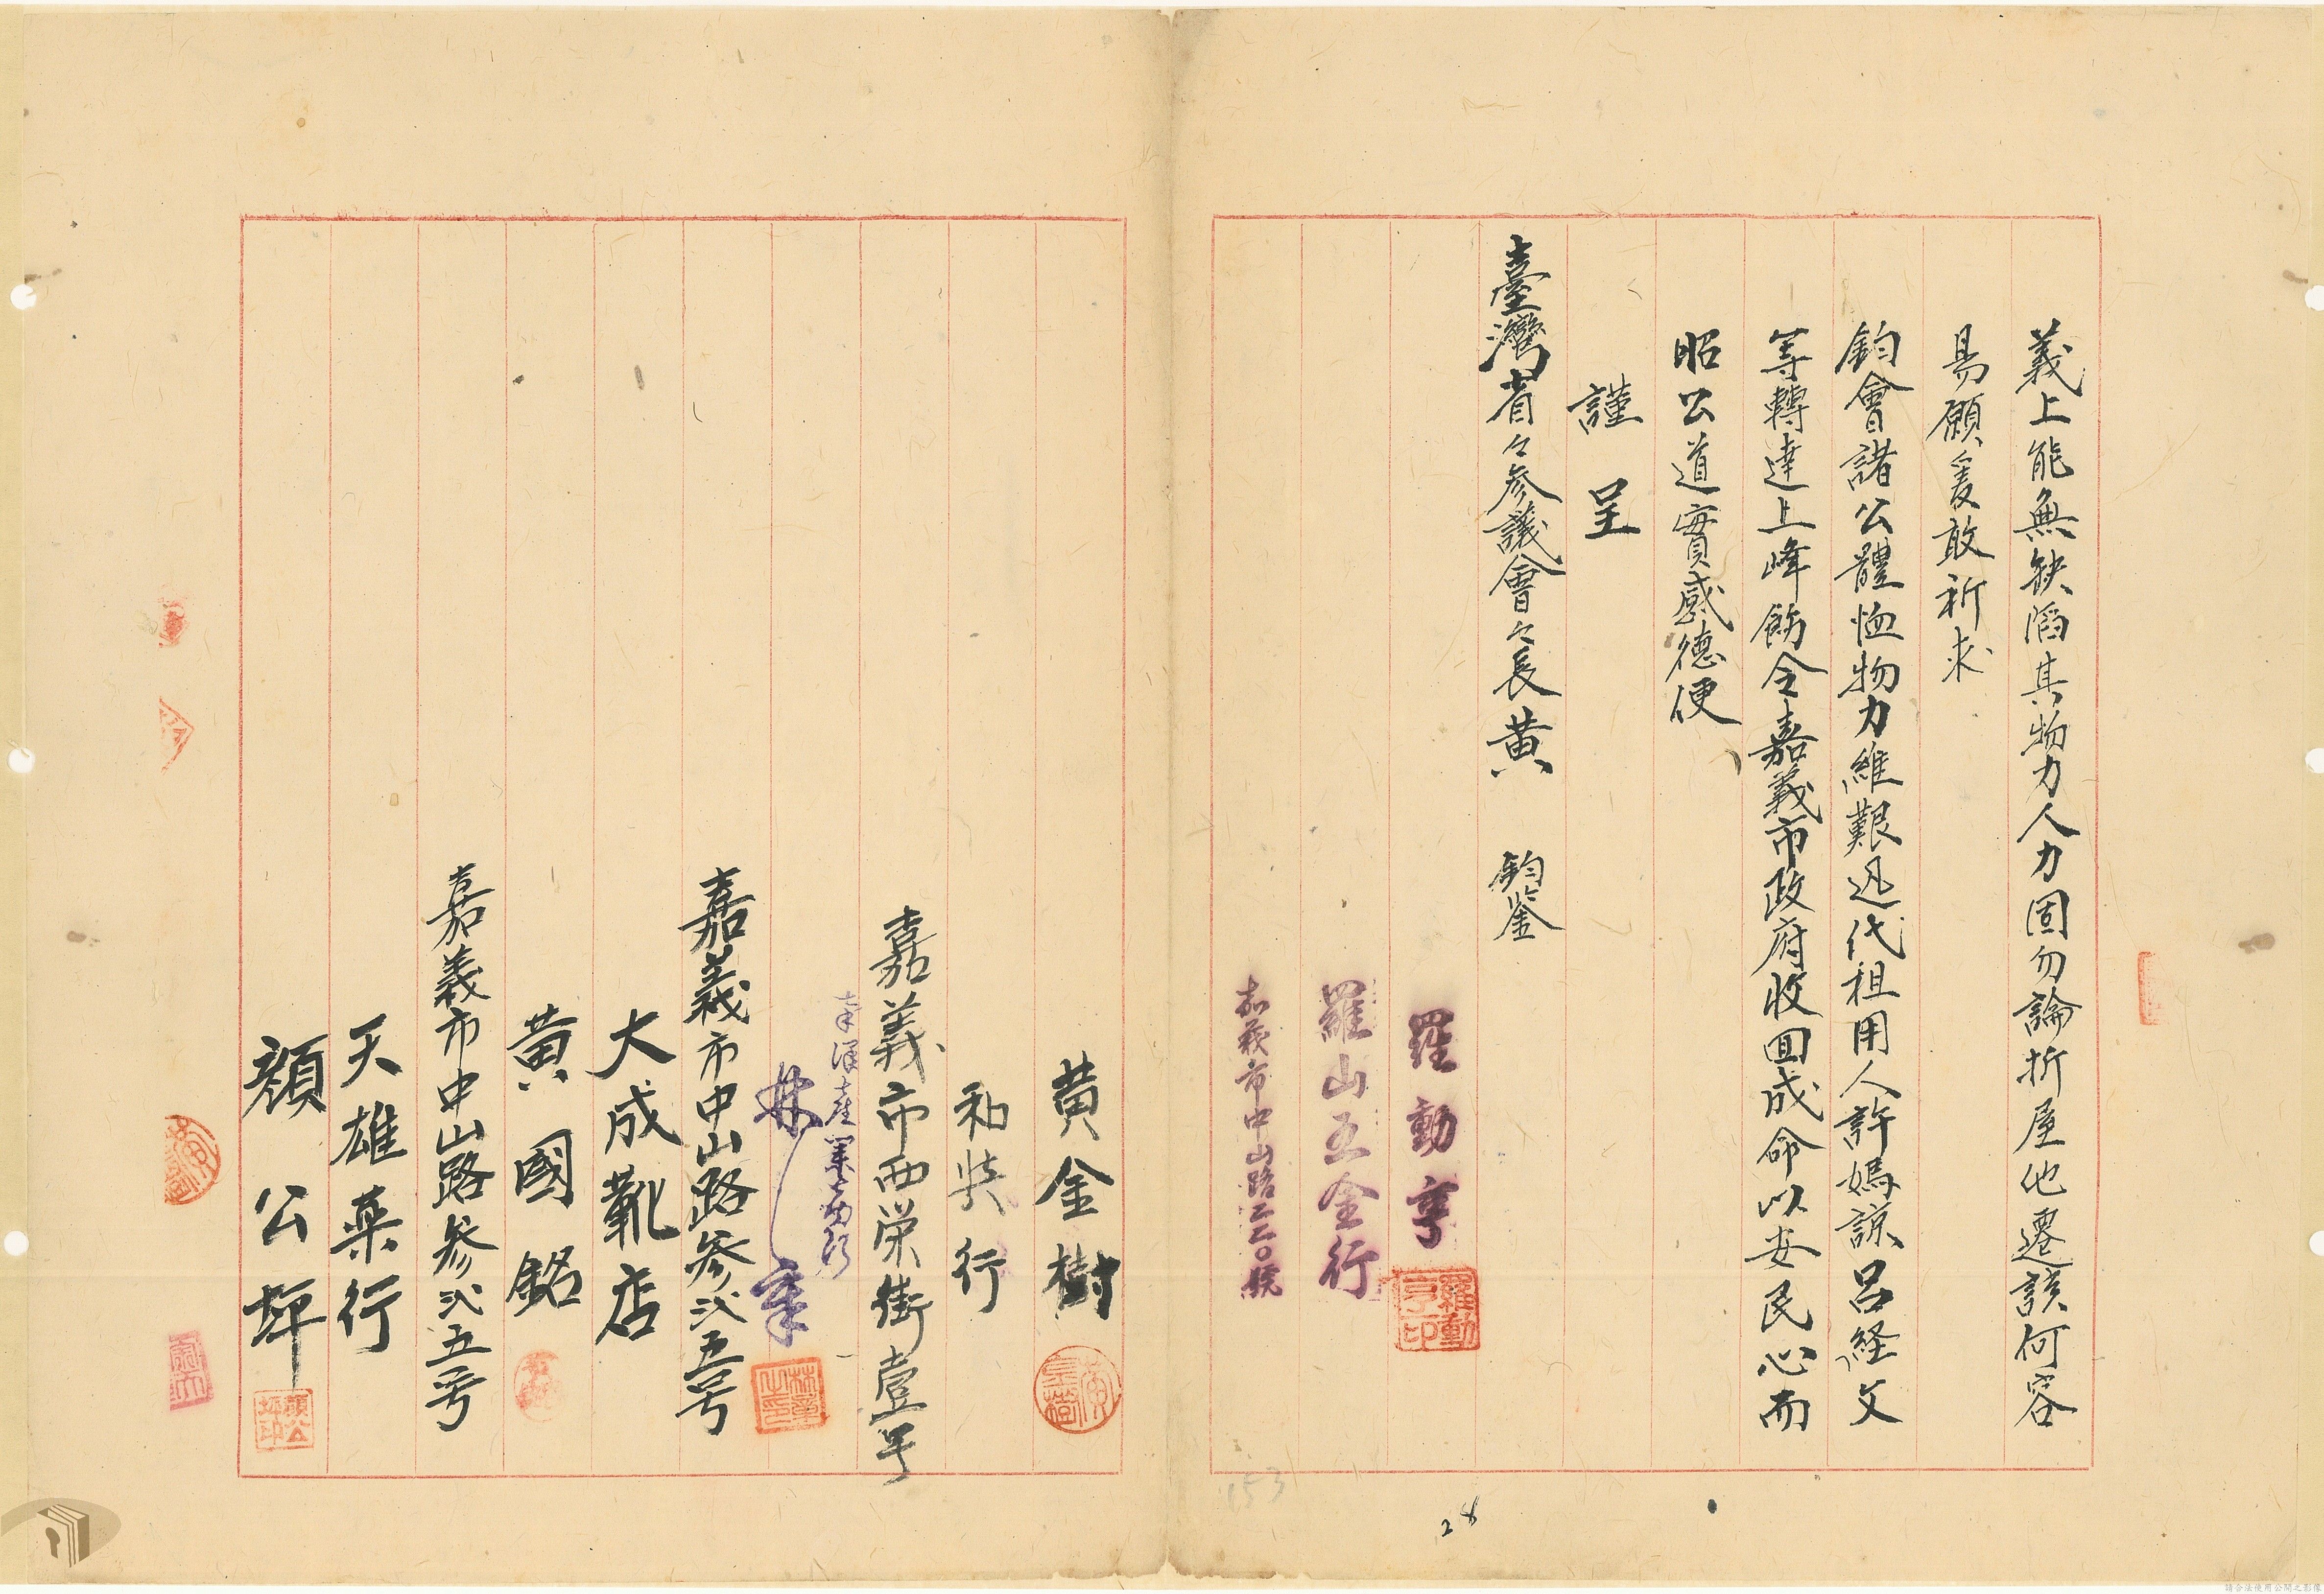 義上能無缺陷其物力人力固勿論折屋他遷該何容
易願爰敢祈求
鈞會諸公體恤物力維艱迅代祖用人許嫣諒呂経文
等轉達上峰飭令嘉義市政府收回成命以安民心而
昭公道實感德便
謹呈
臺灣省々參議會々長黄 鈞鉴
羅動亨
羅動亨印
羅山五金行
嘉義市中山路二二〇號
28
153
黄金樹
和興行
嘉義市西栄街壹号
林章
嘉義市中山路參弍五号
大成靴店
黄國銘
嘉義市中山路參弍五号
天雄薬行
顏公坪
顏公坪印
請合法使用公開之影像